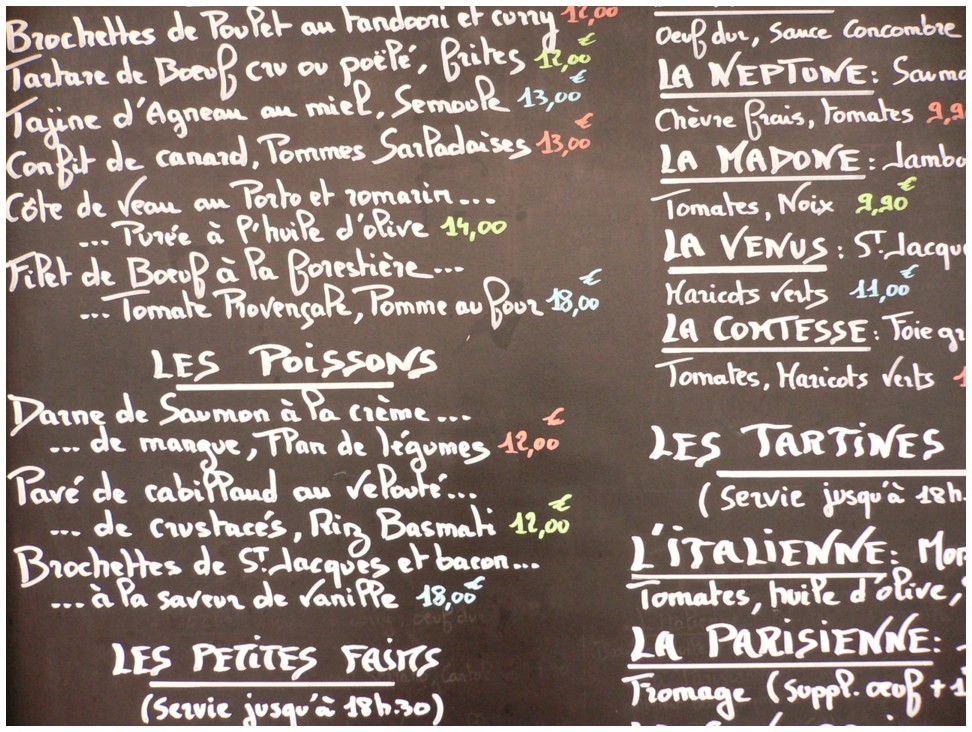 Brochettes de Poulet au tandoori et curry 12,00
Tartare de Boeuf cru ou poëlé, frites 12,00 €
Tajine d'Agneau au miel, Semoule 13,00 €
Confit de canard, Pommes Sarladaises 13,00 €
Côte de Veau au Porto et romarin...
... Purée à l'huile d'olive 14,00
Filet de Boeuf à la forestière...
... Tomate Provençale, Pomme au four 18,00 €
LES POISSONS
Darne de Saumon à la crème ...
... de mangue, Flan de légumes 12,00 €
Pavé de cabillaud au velouté...
... de crustacés, Riz Basmati 12,00 €
Brochettes de St. Jacques et bacon...
... à la saveur de vanille 18,00 €
LES PETITES FAIMS
(Servie jusqu'à 18h.30)
Oeuf dur, Sauce Concombre
LA NEPTUNE: Saumo
Chèvre frais, Tomates 9,90
LA MADONE: Jambo
Tomates, Noix 9,90 €
LA VENUS: St. Jacqu
Haricots verts 11,00 €
LA COMTESSE: Foie gr
Tomates, Haricots verts
LES TARTINES
(Servie jusqu'à 18h.
L'ITALIENNE: Mo
Tomates, huile d'olive,
LA PARISIENNE:
Fromage (Suppl. oeuf + 1